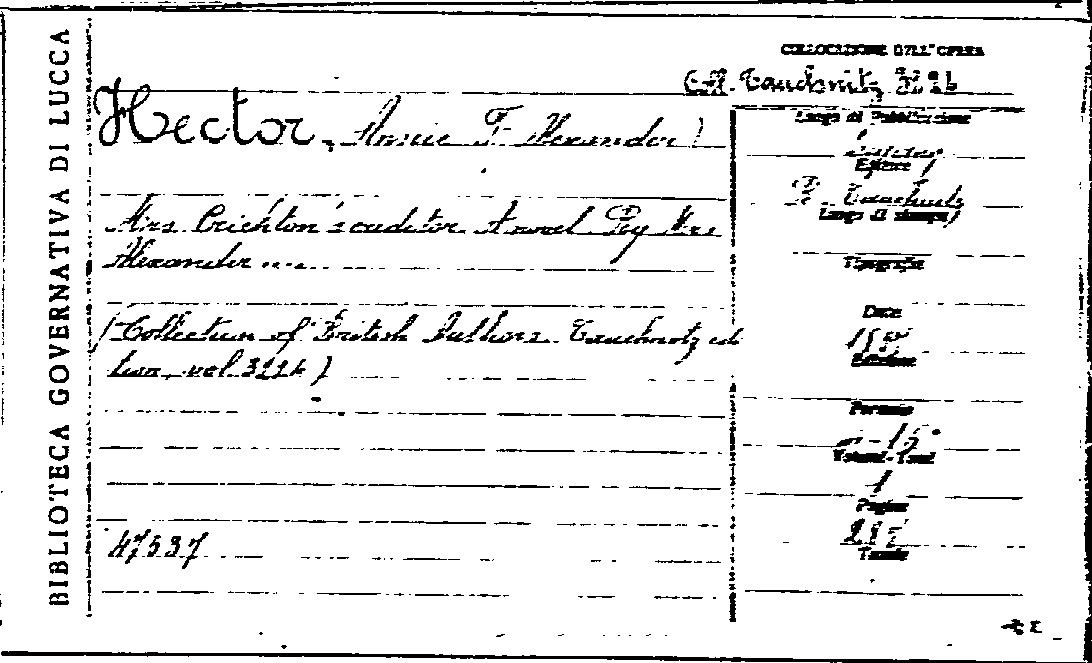 BIBLIOTECA GOVERNATIVA DI LUCCA
COLLOCAZIONE DELL'OPERA
Coll. Tauchnitz
Hector, Annie F. Alexander)
Mrs Crichton's creditor A novel By Mrs
Alexander ....
(Collection of British Authors. Tauchnitz edi
tion, vol.
47537
Luogo di Pubblicazione
Editore
B. Tauchnitz
Luogo di stampa
Tipografia
Data
Edizione
Formato
in-16°
Volumi-Tomi
1
Pagine
Tavole